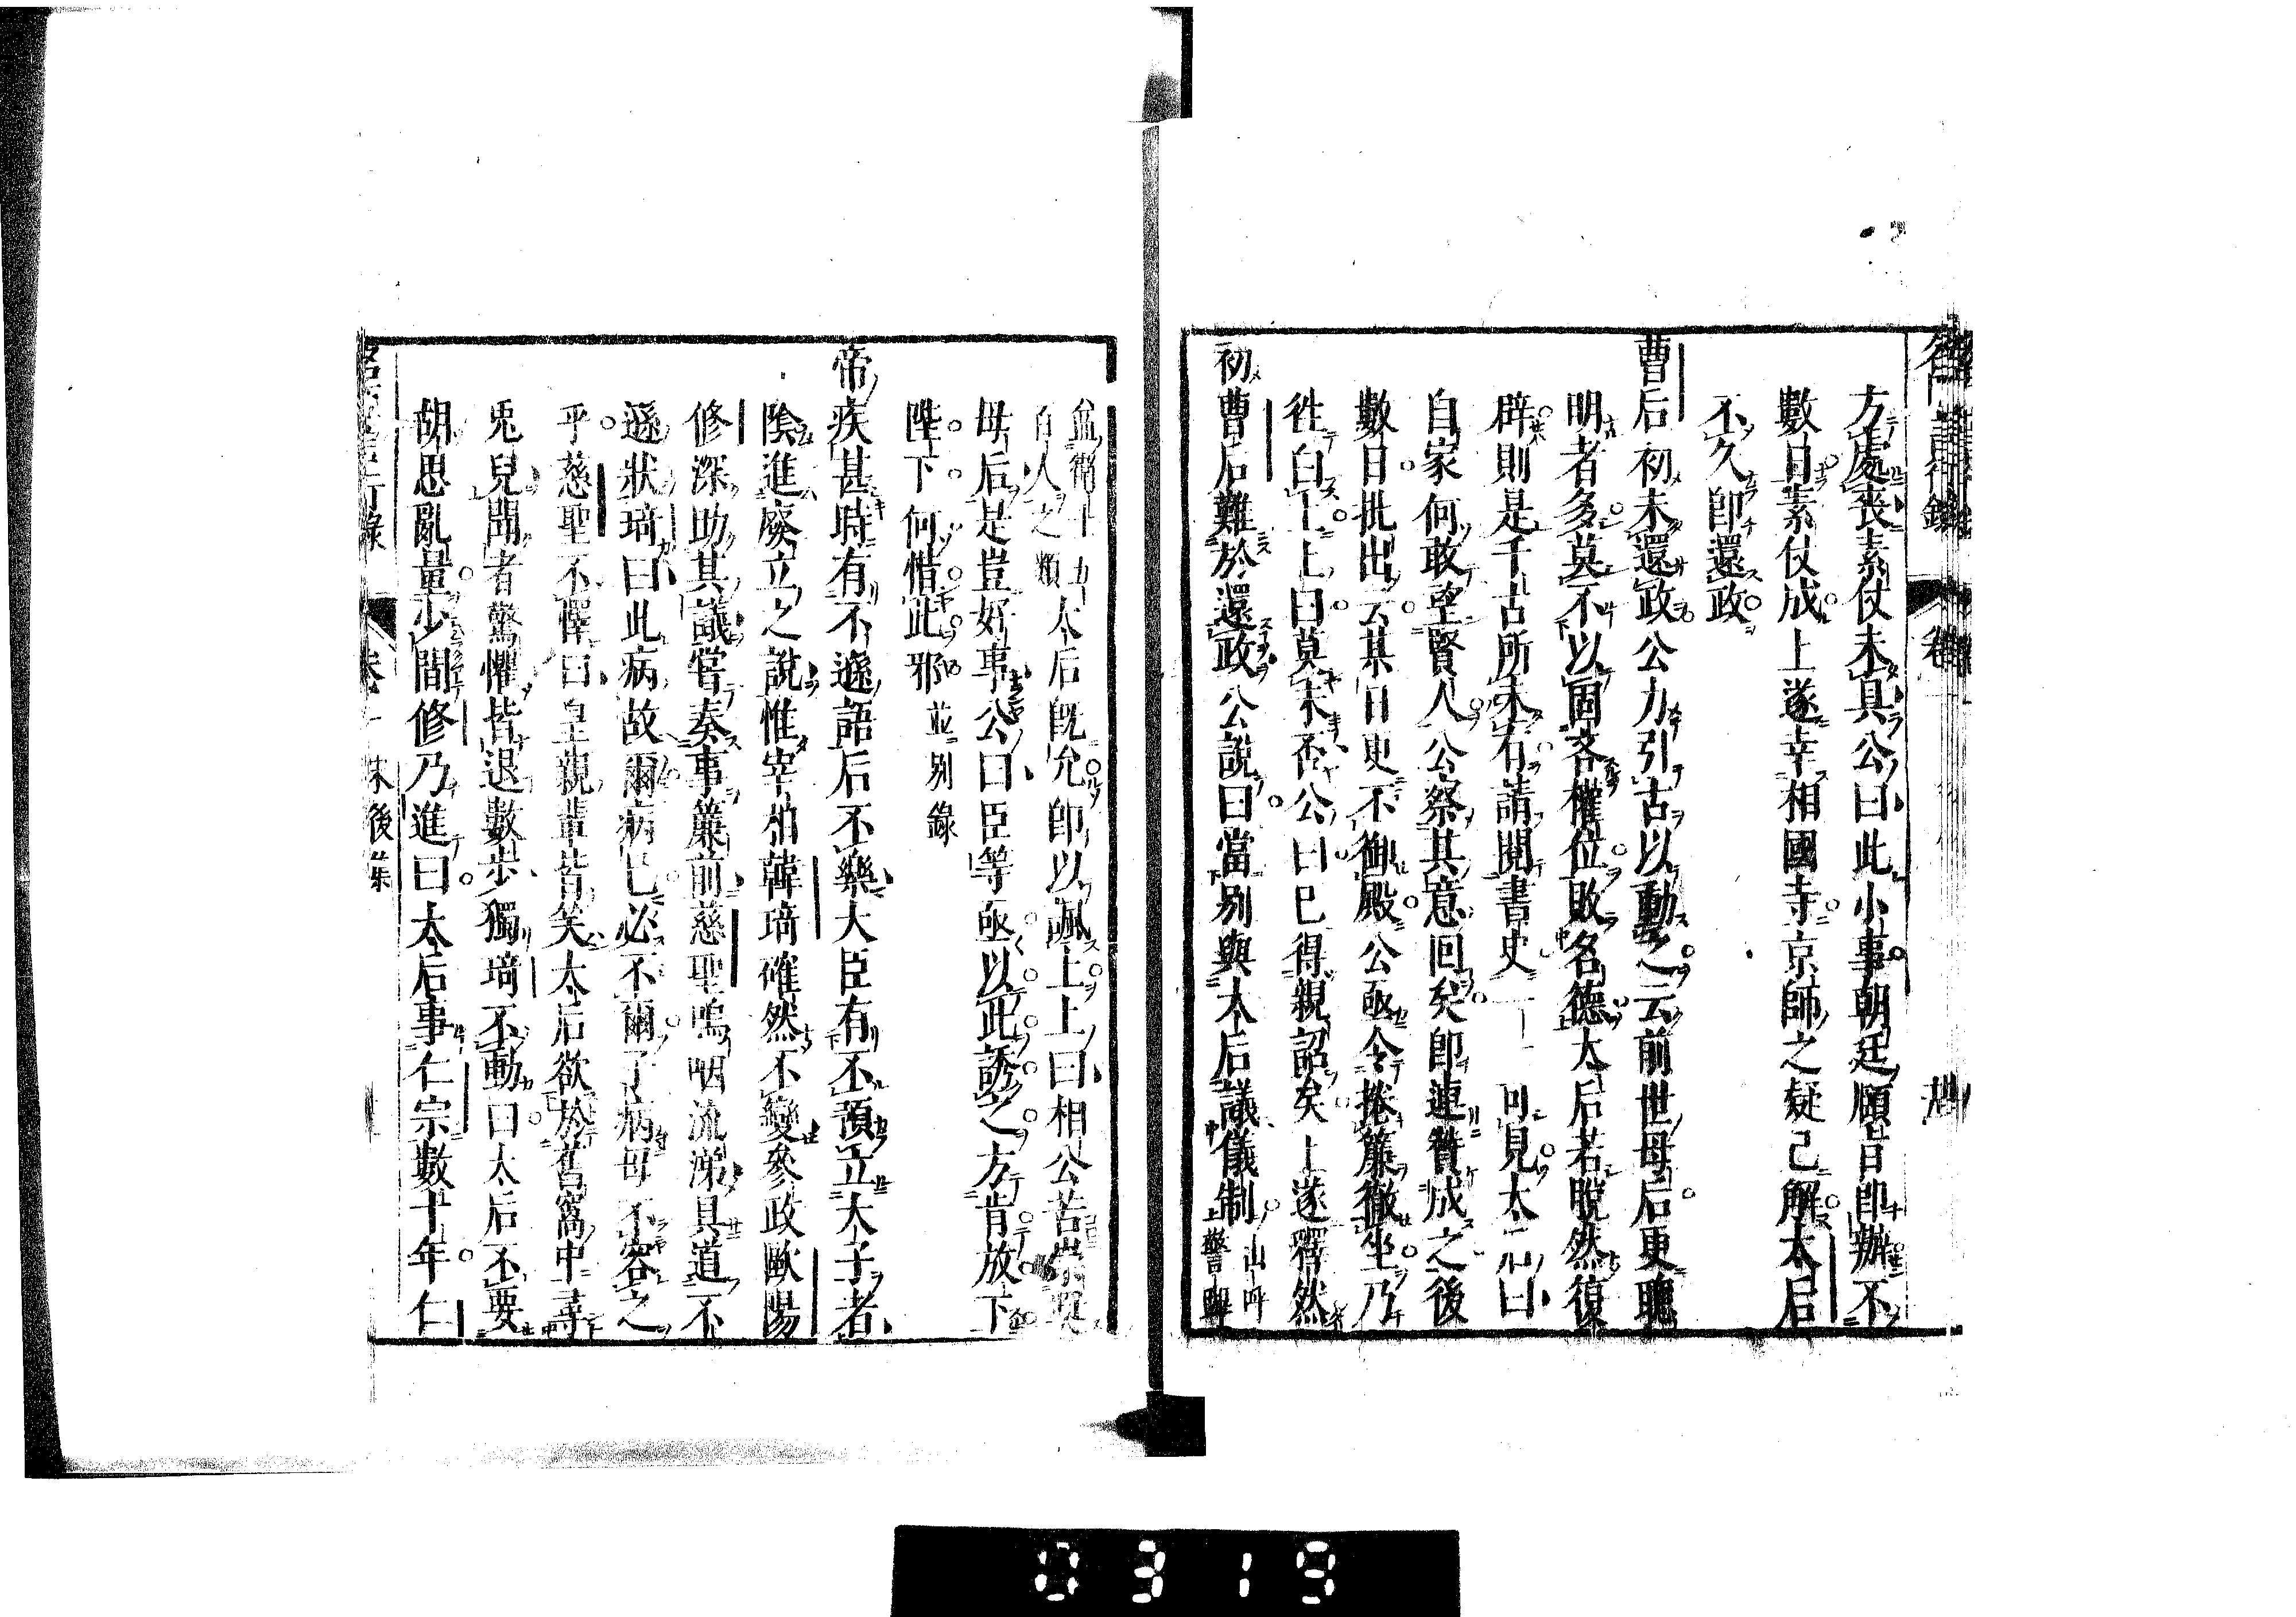 方處喪素仗未具公曰此小事朝廷頤旨即辦不
數日素仗成上遂幸相國寺京師之疑已解太后
不久即還政
曹后初未還政公力引古以動之云前世母后更聰
明者多莫不以固吝權位敗名德太后若脫然復
辟則是千古所未有請閱書史 可見太后曰
自家何敢望賢人公察其意回矣即連贊成之後
數日批出云某日更不御殿公亟令捲簾徹坐乃
徃白上上曰莫未否公曰已得親詔矣上遂釋然
初曹后難於還政公說曰當別與太后議儀制 山呼
上警蹕
百人之類 太后既允即以諷上上曰相公苦崇奬
母后是豈好事公曰臣等亟以此誘之方肯放下
陛下何惜此邪 並別錄
帝疾甚時有不遜語后不樂大臣有不預立太子者
陰進廢立之說惟宰相韓琦確然不變參政歐陽
修深助其議嘗奏事簾前慈聖嗚咽流涕具道不
遜狀琦曰此病故爾病已必不爾子病母不容之
乎慈聖不懌曰皇親輩皆笑太后欲於舊窩中尋
兎兒聞者驚懼皆退數步獨琦不動曰太后不要
胡思亂量少間修乃進曰太后事仁宗數十年仁
0319